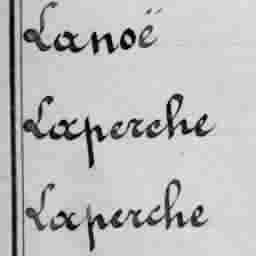 Lanoë
Laperche
Laperche